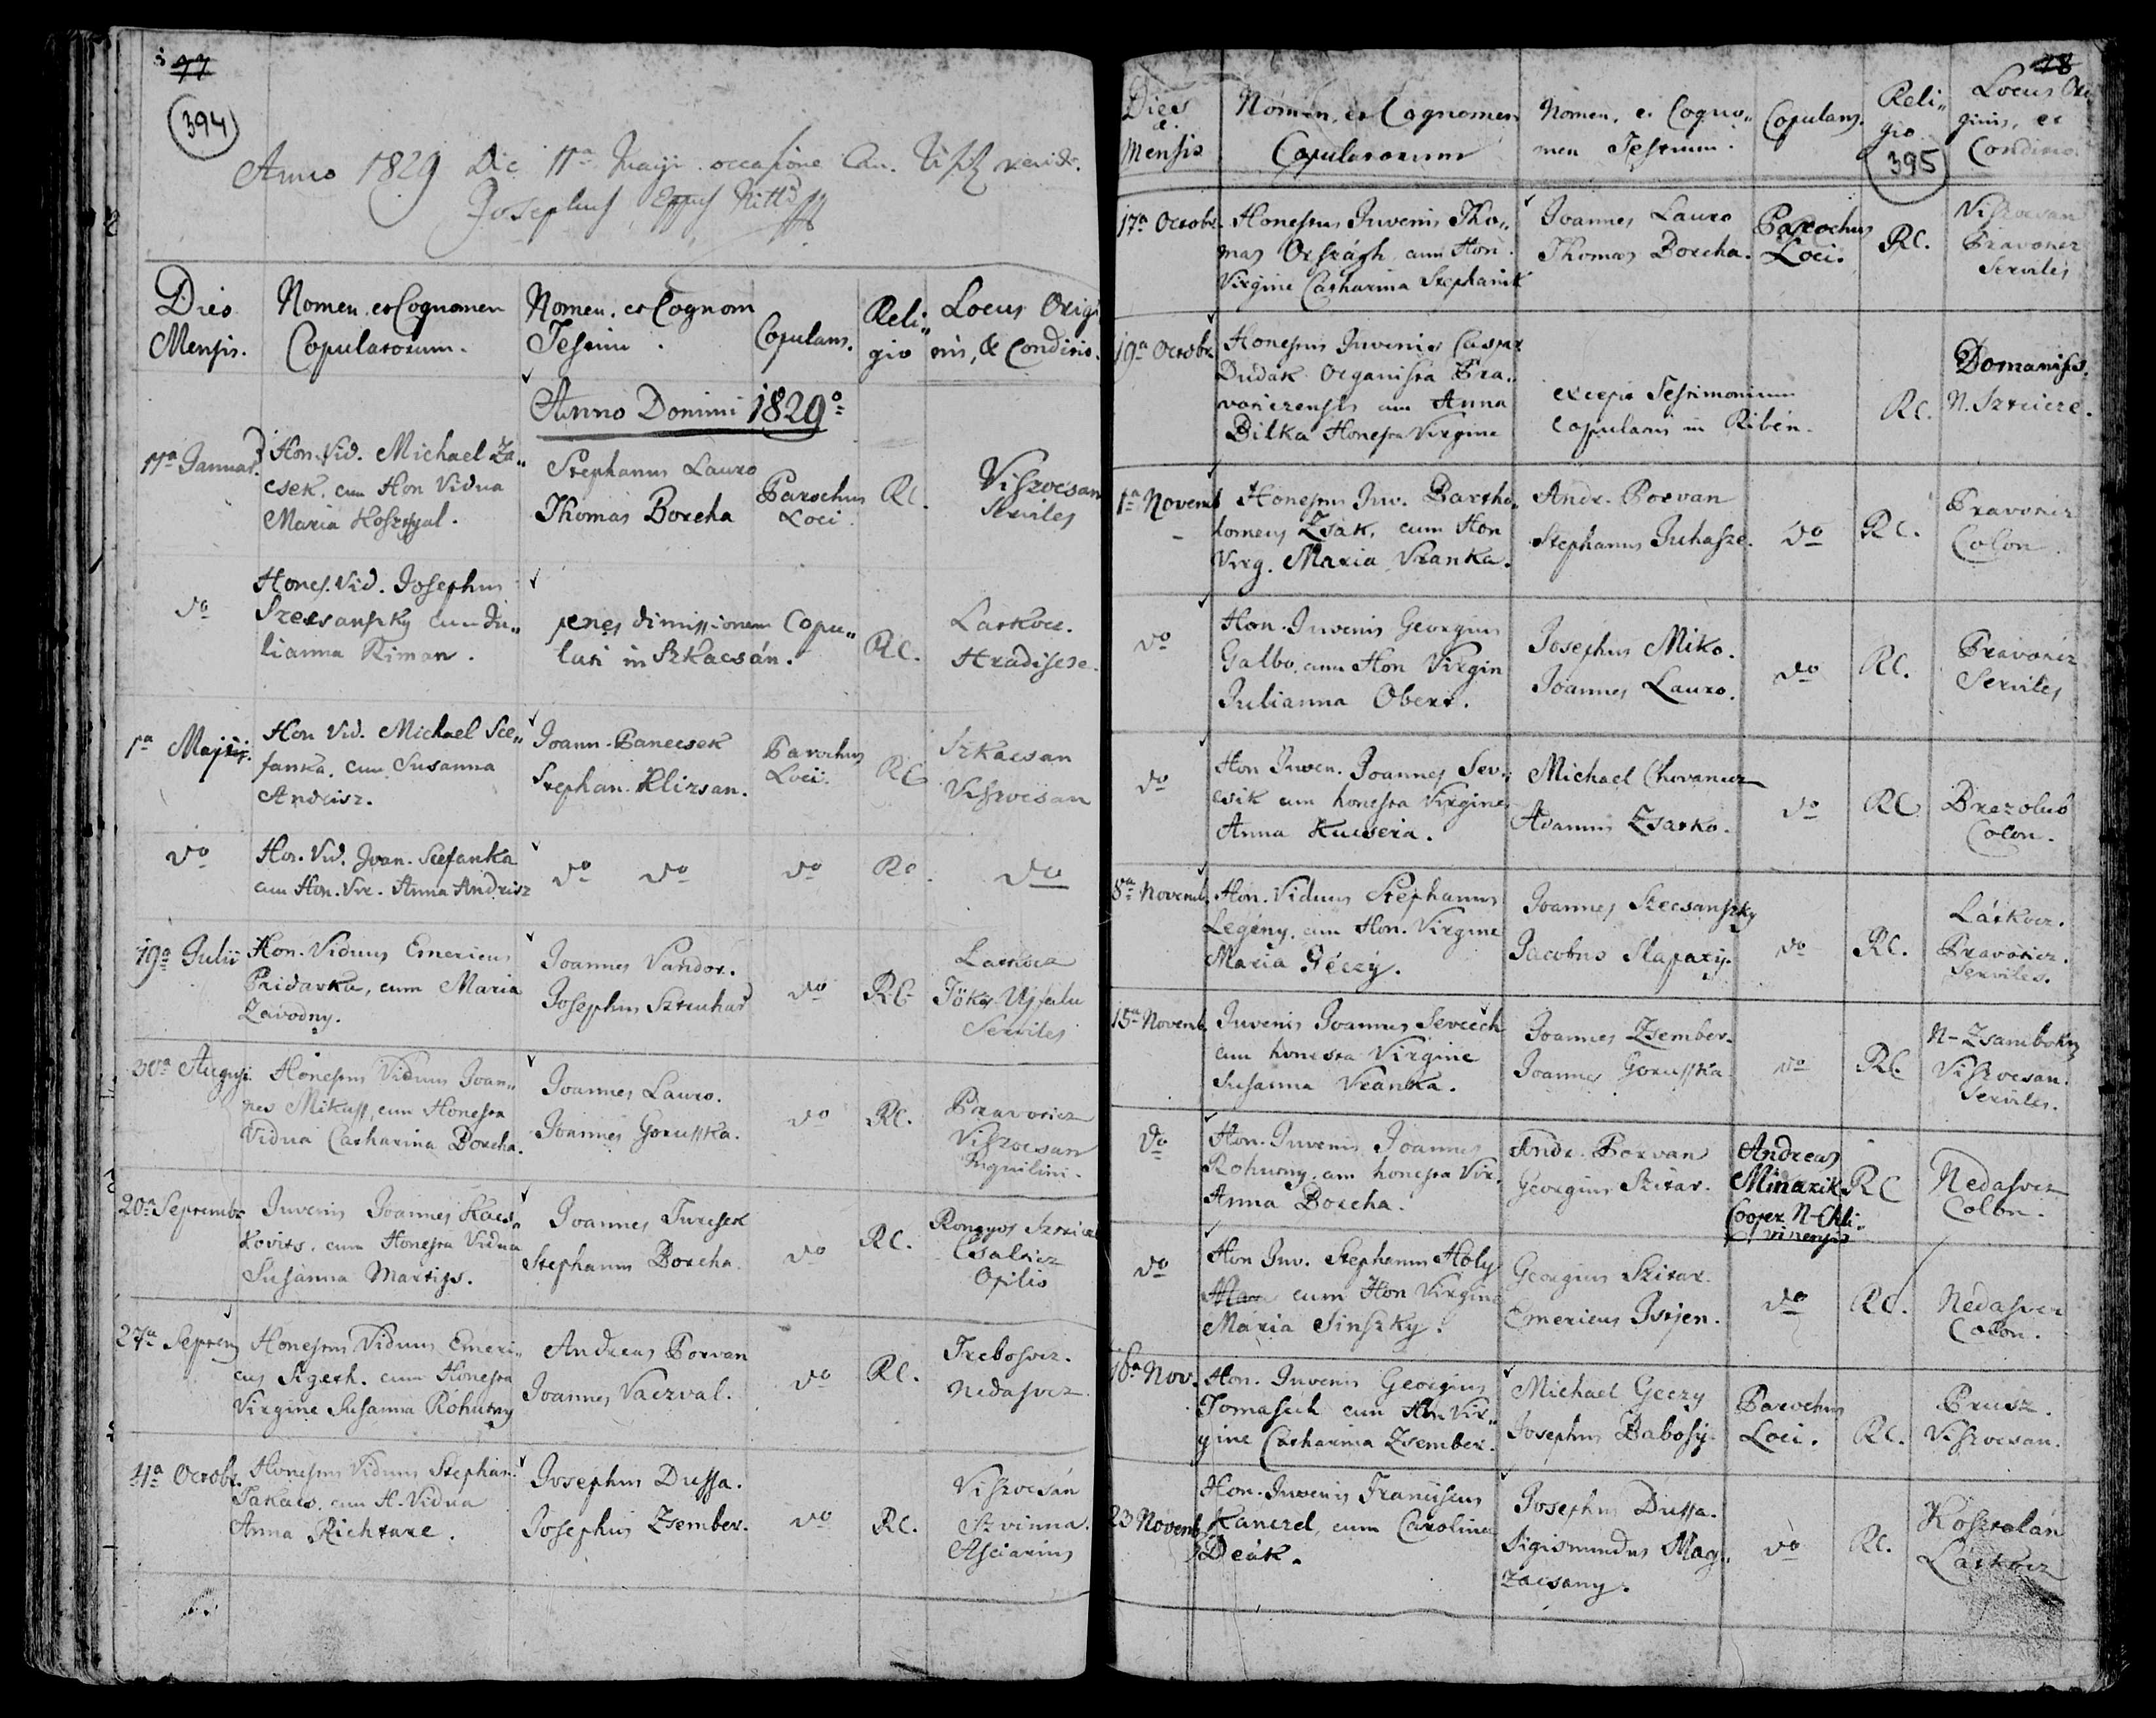 77
394
Anno 1829 Die 11a Maji occasione Can. Visit.
Josephus Eppus Nitts
Dies Mensis.
Nomen et Cognomen Copulatorum.
Nomen et Cognom Testium.
Copulans.
Religio
Locus Originis, & Conditio.
Anno Domini 1829o
11a Januar.
Hon. Vid. Michael Za„
csek, cum Hon Vidua
Maria
Stephanus Lauro
Thomas Borcha
Parochus
Loci.
RC.
Viszocsan
Serviles
do
Hones. Vid. Josephus
Szecsanszky cum Ju„
lianna Kiman.
penes dimissionem Copu„
lati in Szkacsán.
RC.
Laskocz.
Hradiscse.
1a Maji
Hon Vid. Michael Sce„
fanka, cum Susanna
Andrisz.
Joann. Panecsek
Stephan. Klizsan.
Parochus
Loci.
RC
Szkacsan
Viszocsan
do
Hon. Vid. Joan. Scefanka
cum Hon. Vir. Anna Andrisz
do do
do
RC
do
19a Julii
Hon. Viduus Emericus
Pridavka, cum Maria
Závodny.
Joannes Vandor.
Josephus Sztruhar
do
RC
Laskocz
Tökés-Ujfalu
Serviles
30a August.
Honestus Viduus Joan„
nes Mikuss, cum Honesta
Vidua Catharina Borcha.
Joannes Lauro.
Joannes Gorusska.
do
RC.
Pravoticz
Viszocsan
Inquilini.
20a Septembr
Juvenis Joannes Kacs„
kovits, cum Honesta Vidua
Susanna Martiss.
Joannes Turcsek
Stephanus Borcha.
do
RC.
Rongyos
Csalticz
Opilio
27a Septem
Honestus Viduus Emeri„
cus Sigeth, cum Honesta
Virgine Susanna Rohutny
Andreas Porvan
Joannes Vaczval.
do
RC.
Trebosvcz.
Nedasvcz.
4a Octobr.
Honestus Viduus Stephan.
Takacs, cum H. Vidua
Anna Richtare.
Josephus Dussa.
Josephus Zsember.
do
RC.
Viszocsán
Szvinna.
Asciarius
78
Dies et Mensis
Nomen, et Cognomen Copulatorum
Nomen, et Cogno„ men Testium.
Copulans.
Reli„ gio.
Locus Ori ginis, et Conditio.
395
17a Octobr.
Honestus Juvenis Tho„
mas Orszagh, cum Hon.
Virgine Catharina Stephanik
Joannes Lauro
Thomas Borcha.
Parochus
Loci.
RC.
Viszocsan
Pravoticz
Serviles
19a Octobr.
Honestus Juvenis Caspar
Dudák Organista Pra„
voticzensis cum Anna
Bilka Honesta Virgine
excepit Testimonium
copulans in Ribén.
RC.
Domaniss.
N. Sztricze.
1a Novemb
Honestus Juv. Bartho„
lomeus Zsák, cum Hon
Virg. Maria Vranka.
Andr. Porvan
Stephanus Juhasze.
do
RC.
Pravoticz
Colon.
do
Hon. Juvenis Georgius
Galbo, cum Hon Virgin
Julianna Obert.
Josephus Miko.
Joannes Lauro.
do
RC.
Pravoticz
Serviles
do
Hon Juven. Joannes Sev„
csik cum honesta Virgine
Anna Kucsera.
Michael Chovanecz
Adamus Zsatko.
do
RC
Brezolub
Colon.
8a Novemb.
Hon. Viduus Stephanus
Legény, cum Hon. Virgine
Maria Géczy.
Joannes Szecsanszky
Jacobus Slapary.
do
RC.
Láskocz.
Pravoticz.
Serviles.
15a Novemb.
Juvenis Joannes Sevcech
cum honesta Virgine
Susanna Vranka.
Joannes Zsember.
Joannes Gorusska
do
RC.
N-Zsambokry
Viszocsan.
Serviles.
do
Hon. Juvenis Joannes
Rohutny, cum honesta Vir.
Anna Borcha.
Andr. Porvan
Georgius Szitar.
Andreas
Minarik
Cooper N-Chli„
vinensis
RC
Nedasvcz
Colon.
do
Hon Juv. Stephanus Holy
cum Hon Virgine
Maria Sinszky.
Georgius Szitar.
Emericus Istjen.
do
RC.
Nedasvcz
Colon.
16a Nov.
Hon. Juvenis Georgius
Tomasech cum Hon Vir„
gine Catharina Zsember.
Michael Geczy
Josephus Babosy.
Parochus
Loci.
RC.
Prusz.
Viszocsan.
23 Novemb.
Hon. Juvenis Franciscus
Kanczel, cum Carolina
Deák.
Josephus Dussa.
Sigismundus Mag„
zacsany.
do
RC.
Kosztolán
Láskocz